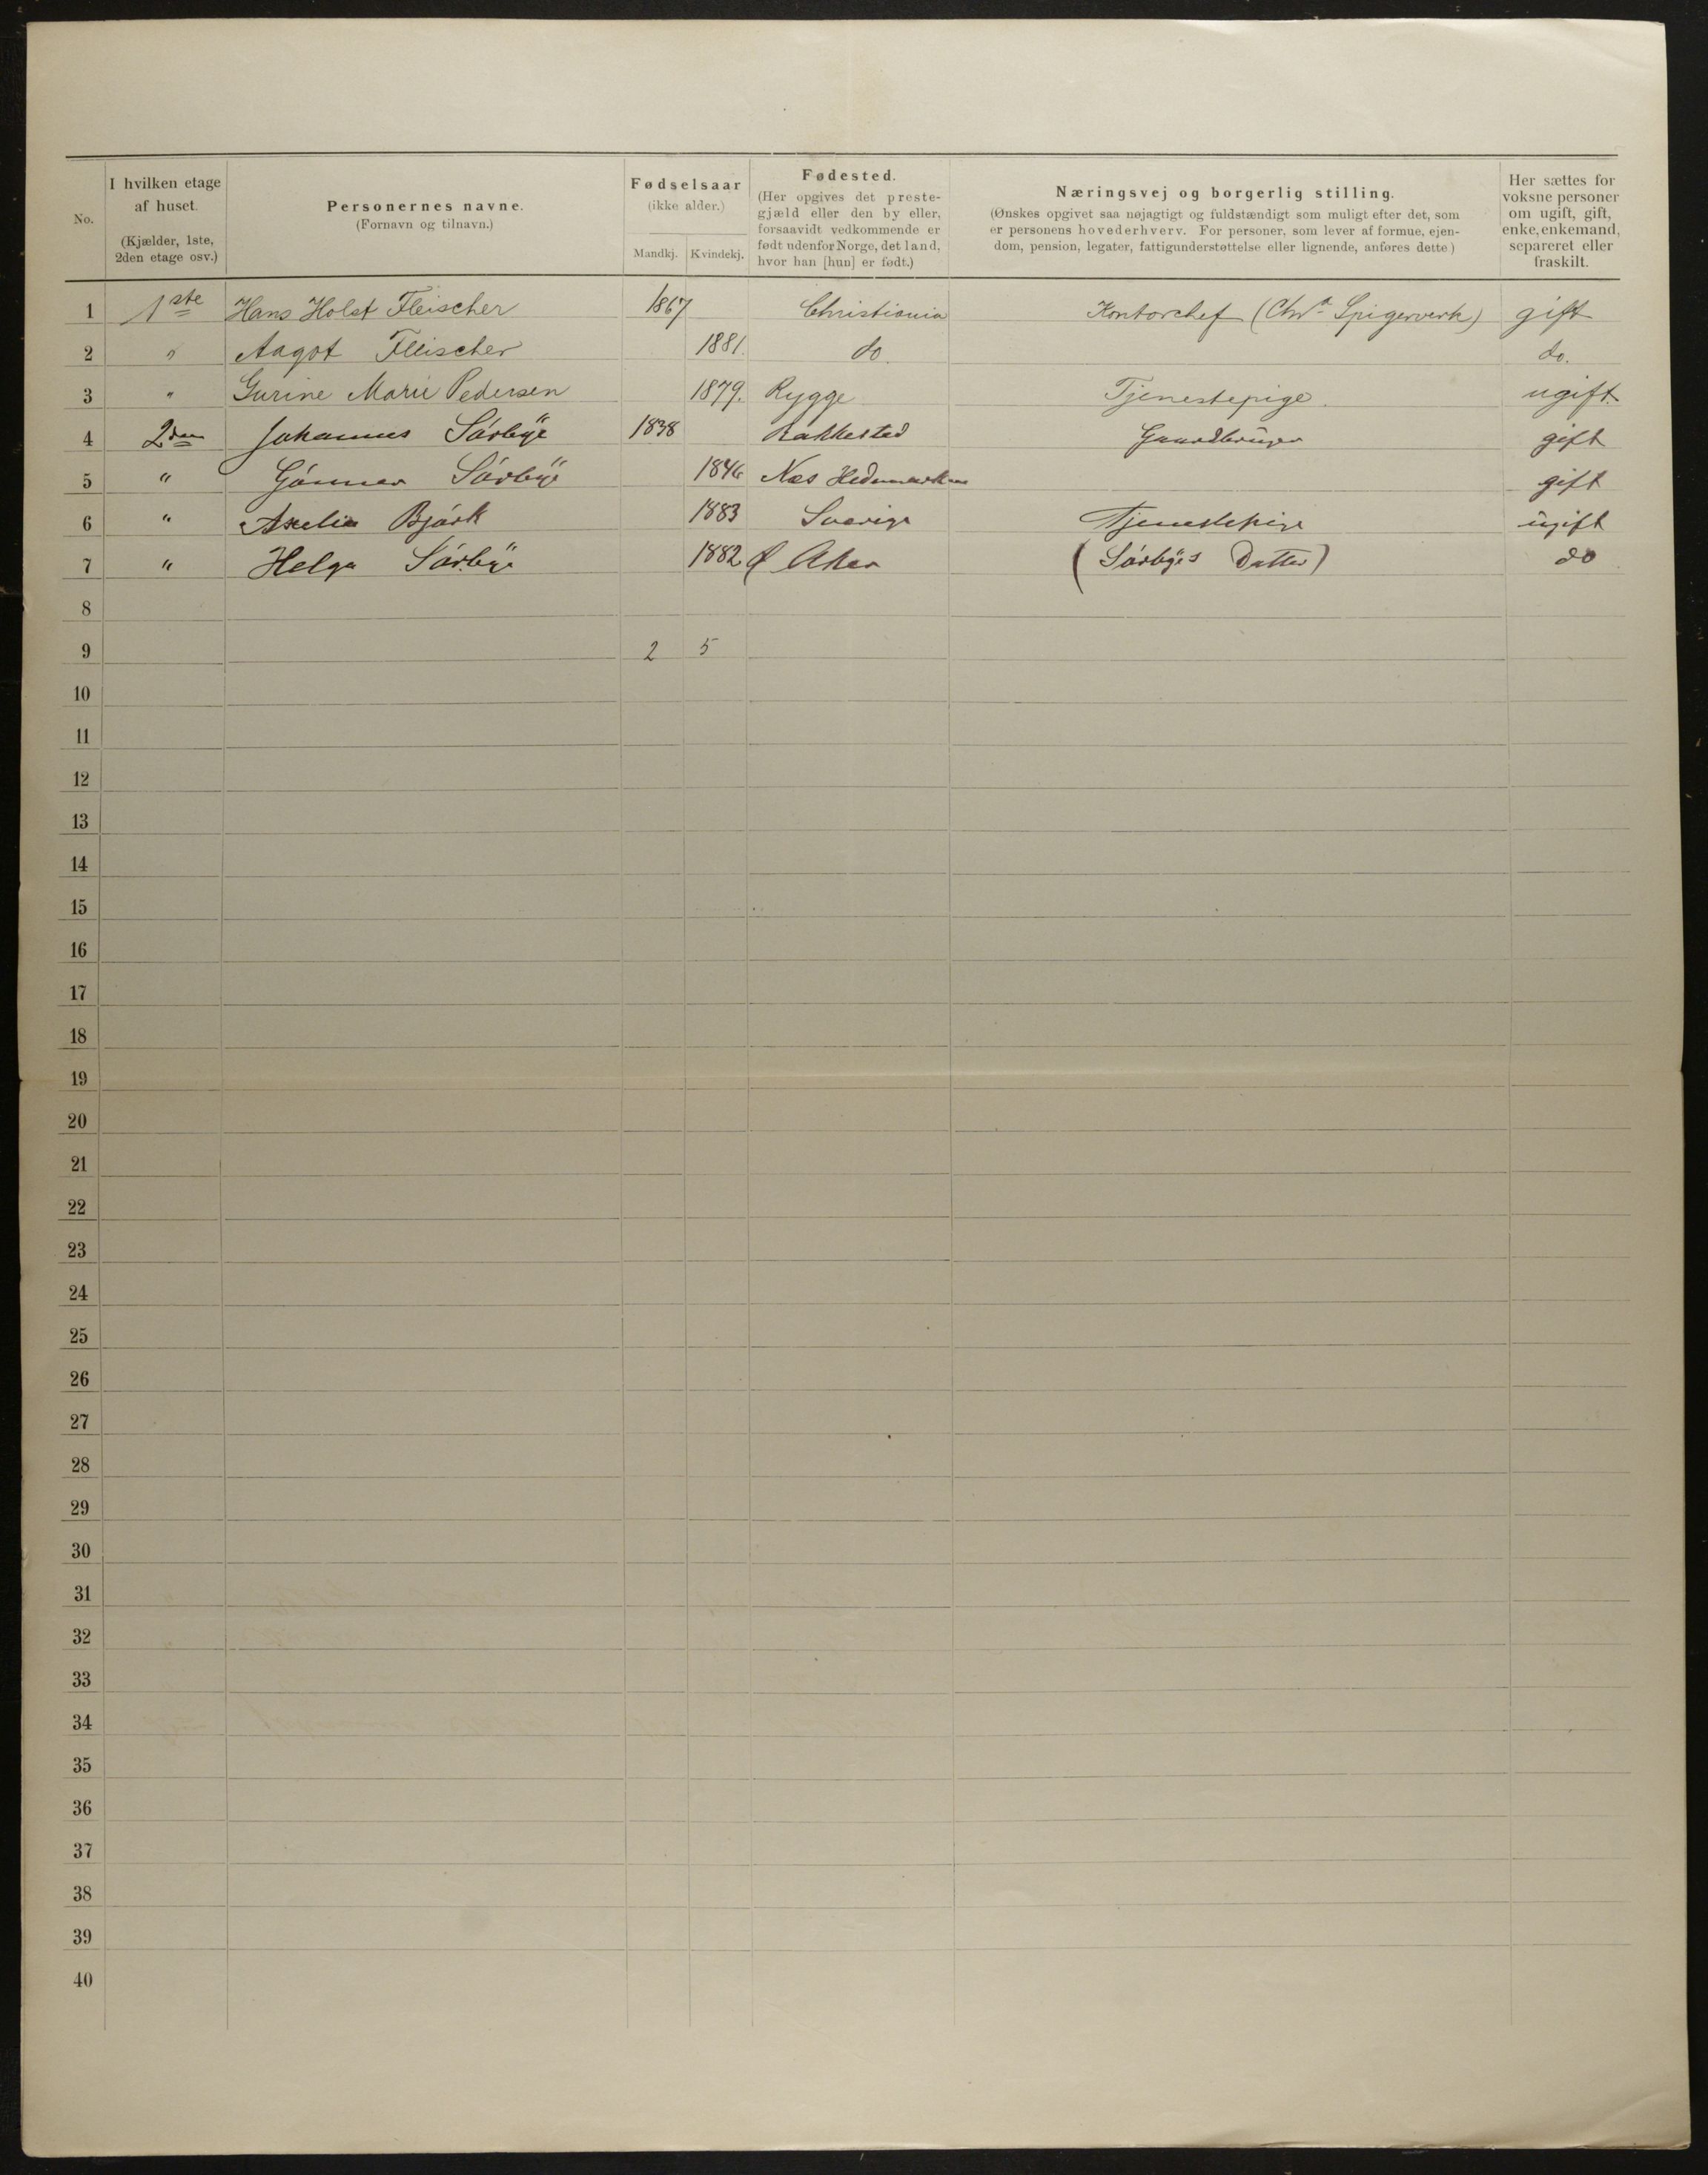 No.
I hvilken etage af huset. (Kjælder, 1ste, 2den etage osv.)
Personernes navne. (Fornavn og tilnavn.)
Fødselsaar (ikke alder.) Mandkj. Kvindekj.
Fødested. (Her opgives det prestegjæld eller den by eller, forsaavidt vedkommende er født udenfor Norge, det land, hvor han [hun] er født.)
Næringsvej og borgerlig stilling. (Ønskes opgivet saa nøjagtigt og fuldstændigt som muligt efter det, som er personens hovederhverv. For personer, som lever af formue, ejendom, pension, legater, fattigunderstøttelse eller lignende, anføres dette)
Her sættes for voksne personer om ugift, gift, enke, enkemand, separeret eller fraskilt.
1 1ste Hans Holst Fleischer 1867 Christiania Kontorchef (Chra Spigerverk) gift
2 " Aagot Fleischer 1881. do. do.
3 " Gurine Marie Pedersen 1879. Rygge Tjenestepige. ugift.
4 2den Johannes Sórbÿe 1838 Rakkestad Gaardbrüger gift
5 " Gónner Sórbÿe 1846 Næs Hedemarken gift
6 " Axelia Bjórk 1883 Sverige Tjenestepige ügift
7 " Helga Sórbÿe 1882 Aker (Sórbÿes Datter) do
8
9 2 5
10
11
12
13
14
15
16
17
18
19
20
21
22
23
24
25
26
27
28
29
30
31
32
33
34
35
36
37
38
39
40